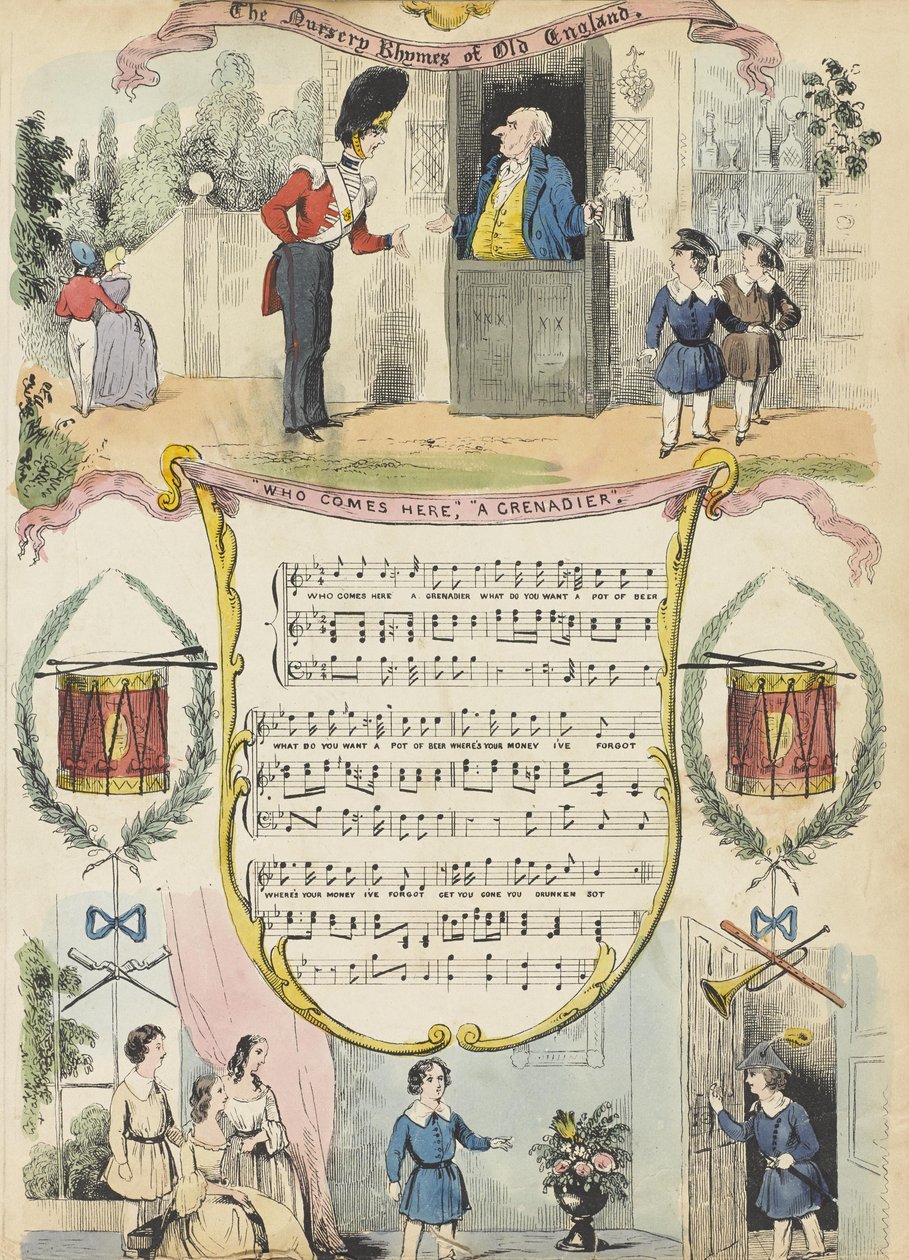 The Nursery Rhymes of Old England.
XXX XIX
"WHO COMES HERE", "A GRENADIER".
WHO COMES HERE A GRENADIER WHAT DO YOU WANT A POT OF BEER
WHAT DO YOU WANT A POT OF BEER WHERE'S YOUR MONEY I'VE FORGOT
WHERE'S YOUR MONEY I'VE FORGOT GET YOU GONE YOU DRUNKEN SOT